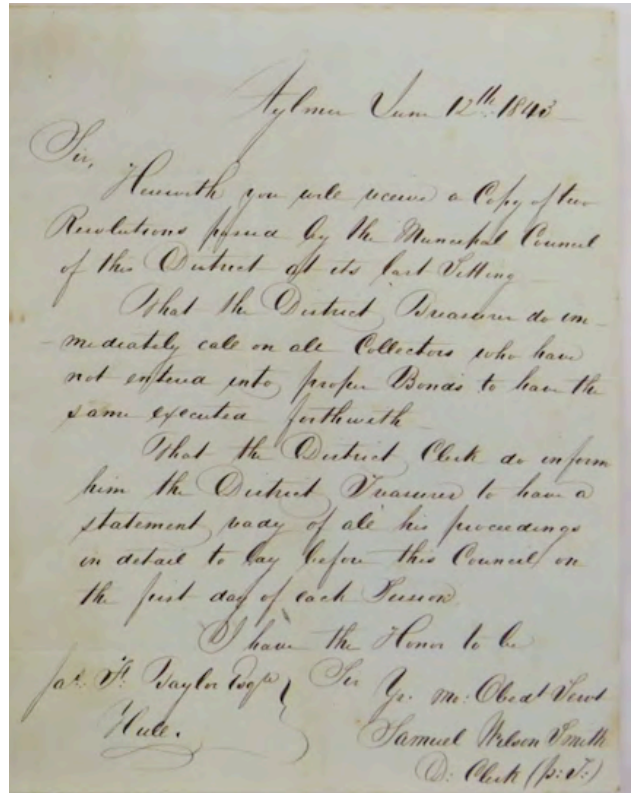 Aylmer June 12th 1843
Sir,
Herewith you will receive a Copy of two
Resolutions passed by the Municipal Council
of this District at its last Sitting—
That the District Treasurer do im-
-mediately call on all Collectors who have
not entered into proper Bonds to have the
same executed forthwith—
That the District Clerk do inform
him the District Treasurer to have a
statement ready of all his proceedings
in detail to lay before this Council on
the first day of each Session
I have the Honor to be
Jas. F. Taylor Esqre Sir
Yr. mo: Obedt Servt
Hull. Samuel Wilson Smith
D: Clerk (p: T:)